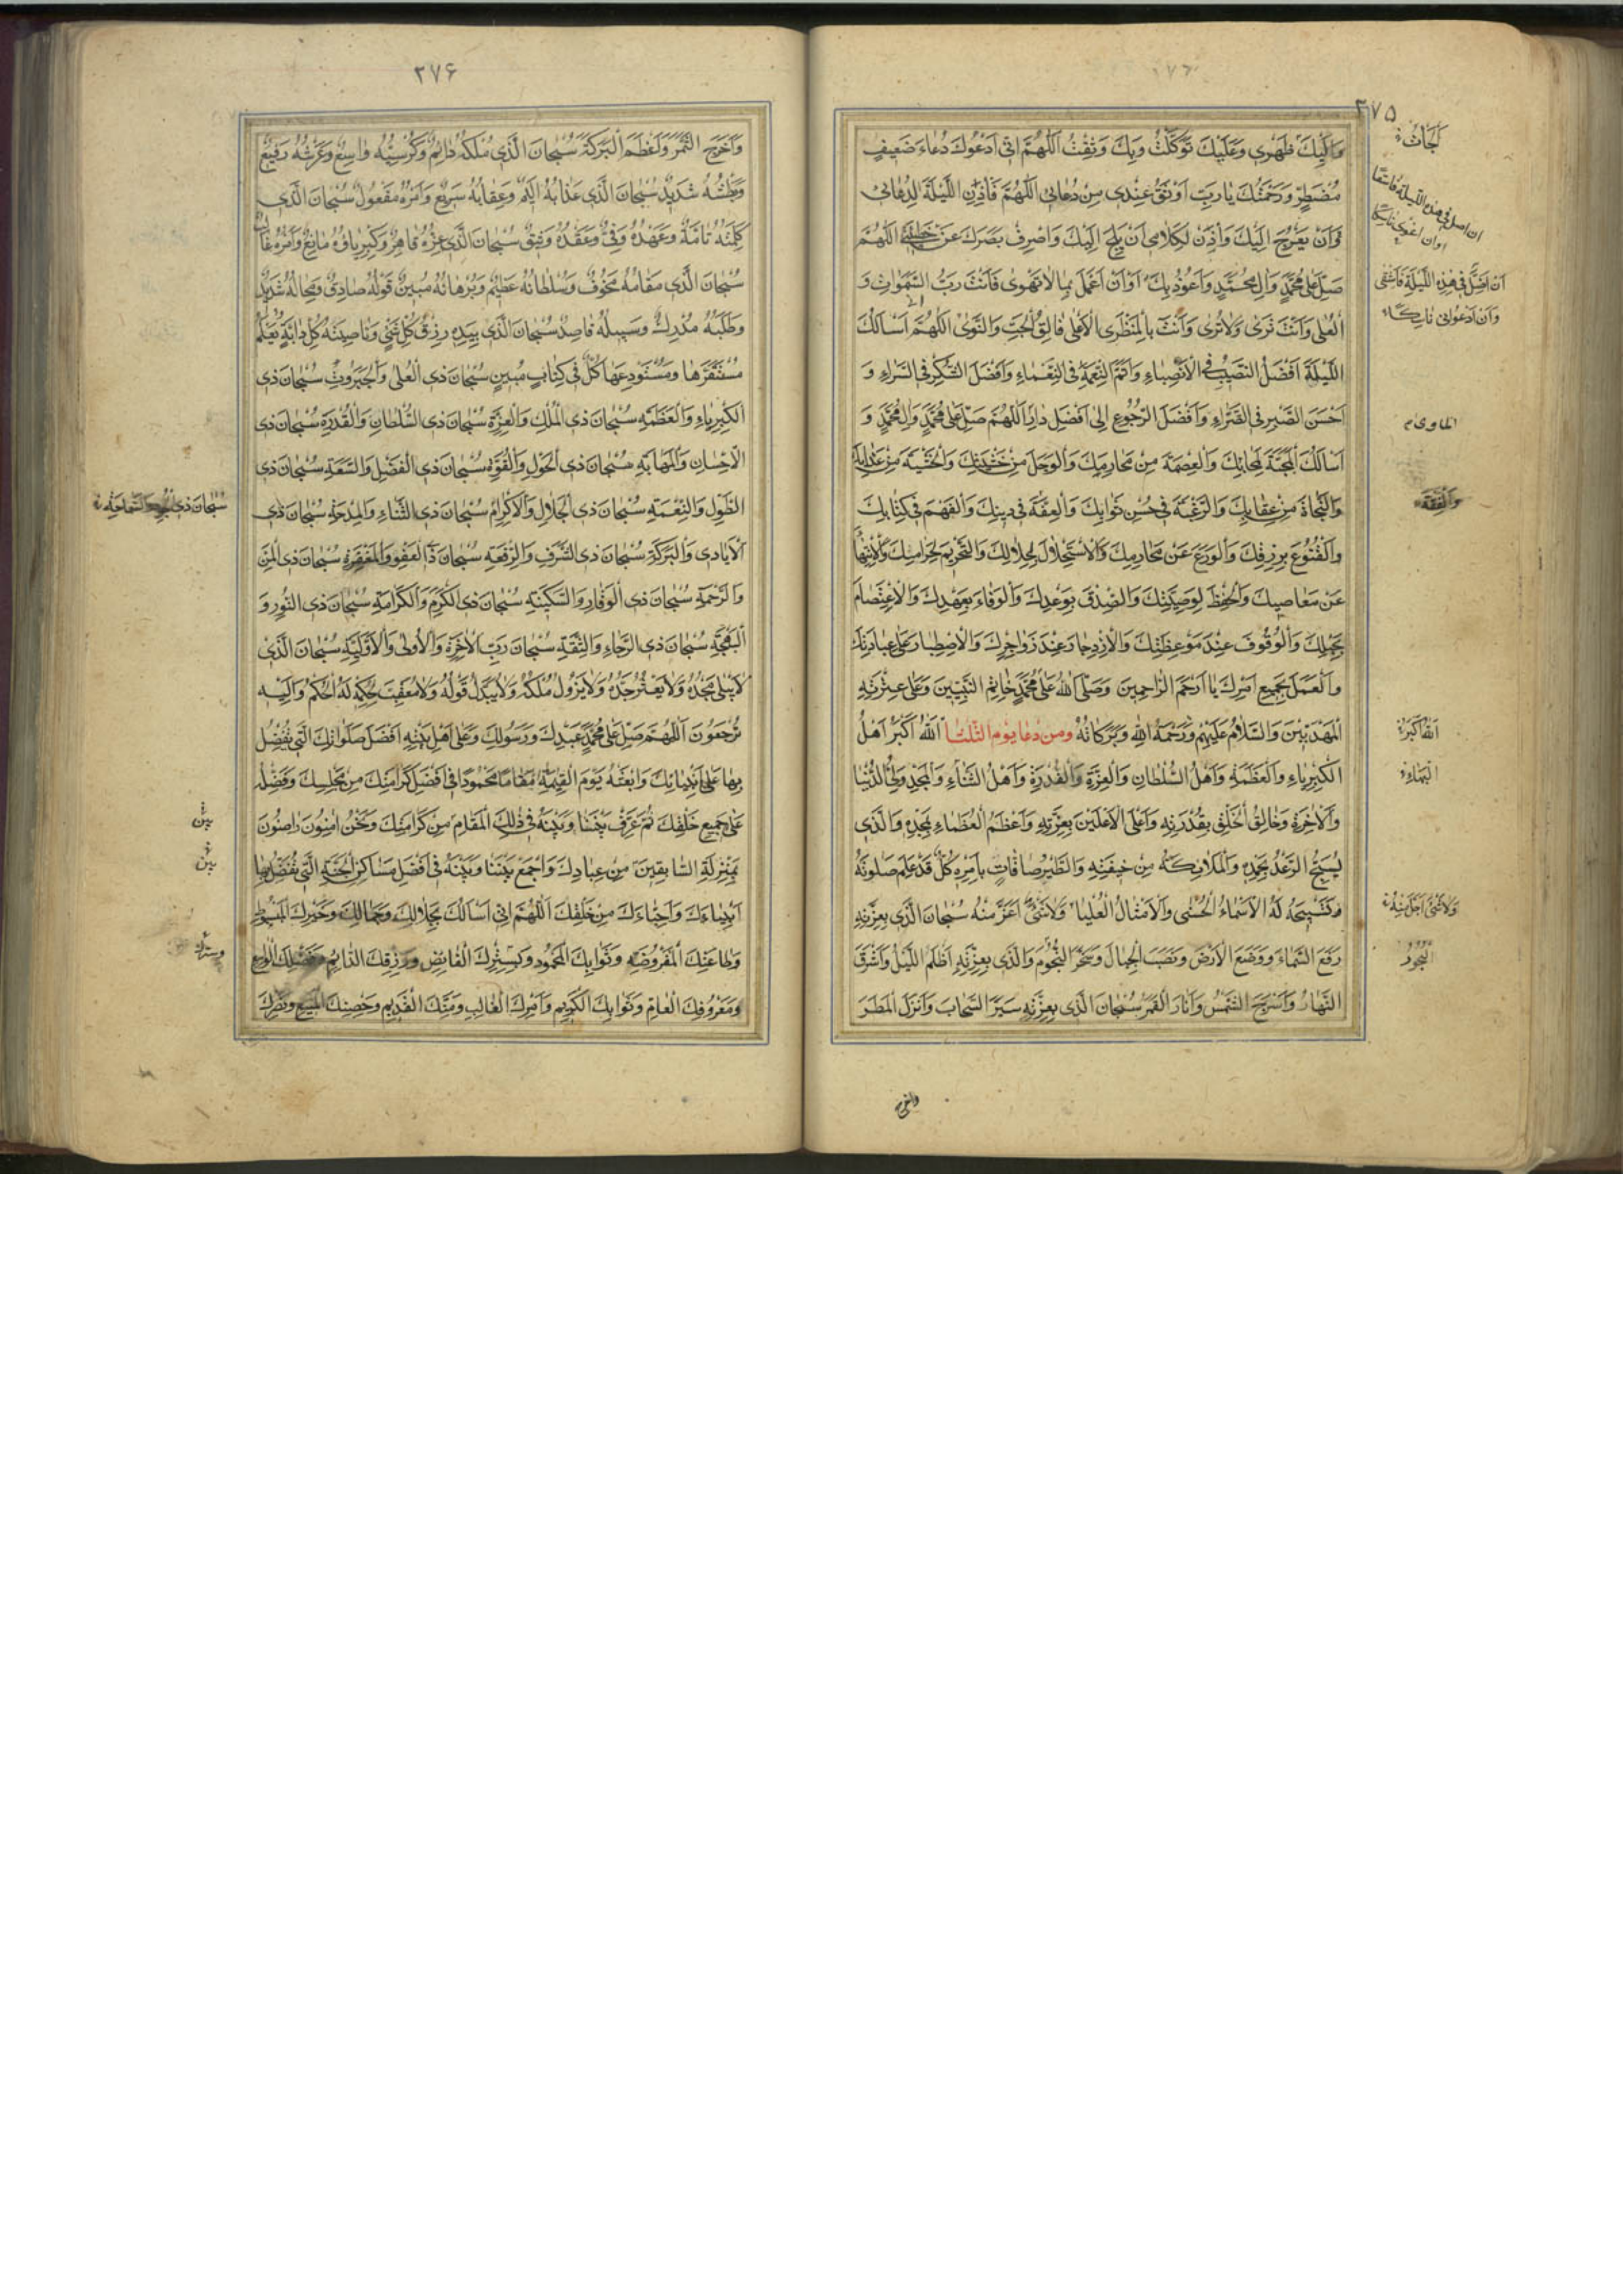 ٢٧٥
وَاِلَيْكَ ظَهْرِي وَعَلَيْكَ تَوَكَّلْتُ وَبِكَ وَثِقْتُ اَللّٰهُمَّ اِنّي اَدْعُوكَ دُعَاءَ ضَعِيفٍ
مُضْطَرٍّ وَرَحْمَتُكَ يَا رَبِّ اَوْثَقُ عِنْدِي مِنْ دُعَائِي اَللّٰهُمَّ فَأْذَنِ اللَّيْلَةَ لِدُعَائِي
اَنْ يَعْرُجَ اِلَيْكَ وَأْذَنْ لِكَلَامِي اَنْ يَلِجَ اِلَيْكَ وَاصْرِفْ بَصَرَكَ عَنْ خَطِيئَتِي اَللّٰهُمَّ
صَلِّ عَلٰى مُحَمَّدٍ وَاٰلِ مُحَمَّدٍ وَاَعُوذُ بِكَ اَوْ اَنْ اَعْمَلَ بِمَا لَا تَهْوٰى فَاَنْتَ رَبُّ السَّمٰوَاتِ وَ
الْعُلٰى وَاَنْتَ تَرٰى وَلَا تُرٰى وَاَنْتَ بِالْمَنْظَرِ الْاَعْلٰى فَالِقُ الْحَبِّ وَالنَّوٰى اَللّٰهُمَّ اَسْاَلُكَ
اللَّيْلَةَ اَفْضَلَ النَّصِيبِ فِي الْاَنْصِبَاءِ وَاَتَمَّ النِّعْمَةِ فِي النَّعْمَاءِ وَاَفْضَلَ الشُّكْرِ فِي السَّرَّاءِ وَ
اَحْسَنَ الصَّبْرِ فِي الضَّرَّاءِ وَاَفْضَلَ الرُّجُوعِ اِلٰى اَفْضَلِ دَارٍ اَللّٰهُمَّ صَلِّ عَلٰى مُحَمَّدٍ وَاٰلِ مُحَمَّدٍ وَ
اَسْاَلُكَ الْمَحَبَّةَ لِمَحَابِّكَ وَالْعِصْمَةَ مِنْ مَحَارِمِكَ وَالْوَجَلَ مِنْ خَشْيَتِكَ وَالْخَشْيَةَ مِنْ عَذَابِكَ
وَالنَّجَاةَ مِنْ عِقَابِكَ وَالرَّغْبَةَ فِي حُسْنِ ثَوَابِكَ وَالْعِفَّةَ فِي دِينِكَ وَالْفَهْمَ فِي كِتَابِكَ
وَالْقُنُوعَ بِرِزْقِكَ وَالْوَرَعَ عَنْ مَحَارِمِكَ وَالْاِسْتِحْلَالَ لِحَلَالِكَ وَالتَّحْرِيمَ لِحَرَامِكَ وَالْاِنْتِهَاءَ
عَنْ مَعَاصِيكَ وَالْحِفْظَ لِوَصِيَّتِكَ وَالصِّدْقَ بِوَعْدِكَ وَالْوَفَاءَ بِعَهْدِكَ وَالْاِعْتِصَامَ
بِحَبْلِكَ وَالْوُقُوفَ عِنْدَ مَوْعِظَتِكَ وَالْاِزْدِجَارَ عِنْدَ زَوَاجِرِكَ وَالْاِصْطِبَارَ عَلٰى عِبَادَتِكَ
وَالْعَمَلَ بِجَمِيعِ اَمْرِكَ يَا اَرْحَمَ الرَّاحِمِينَ وَصَلَّى اللّٰهُ عَلٰى مُحَمَّدٍ خَاتِمِ النَّبِيِّينَ وَعَلٰى عِتْرَتِهِ
الْمَهْدِيِّينَ وَالسَّلَامُ عَلَيْهِمْ وَرَحْمَةُ اللّٰهِ وَبَرَكَاتُهُ ومن دعا يوم الثلثا اَللّٰهُ اَكْبَرُ اَهْلُ
الْكِبْرِيَاءِ وَالْعَظَمَةِ وَاَهْلُ السُّلْطَانِ وَالْعِزَّةِ وَالْقُدْرَةِ وَاَهْلُ الثَّنَاءِ وَالْمَجْدِ وَلِيُّ الدُّنْيَا
وَالْاٰخِرَةِ وَخَالِقُ الْخَلْقِ بِقُدْرَتِهِ وَاَعْلَى الْاَعْلَيْنَ بِعِزَّتِهِ وَاَعْظَمُ الْعُظَمَاءِ بِمَجْدِهِ وَالَّذِي
يُسَبِّحُ الرَّعْدُ بِحَمْدِهِ وَالْمَلَائِكَةُ مِنْ خِيفَتِهِ وَالطَّيْرُ صَافَّاتٍ بِاَمْرِهِ كُلٌّ قَدْ عَلِمَ صَلٰوتَهُ
وَتَسْبِيحَهُ لَهُ الْاَسْمَاءُ الْحُسْنٰى وَالْاَمْثَالُ الْعُلْيَا وَلَا شَيْءَ اَعَزُّ مِنْهُ سُبْحَانَ الَّذِي بِعِزَّتِهِ
رَفَعَ السَّمَاءَ وَوَضَعَ الْاَرْضَ وَنَصَبَ الْجِبَالَ وَسَخَّرَ النُّجُومَ وَالَّذِي بِعِزَّتِهِ اَظْلَمَ اللَّيْلُ وَاَشْرَقَ
النَّهَارُ وَاَسْرَجَ الشَّمْسَ وَاَنَارَ الْقَمَرَ سُبْحَانَ الَّذِي بِعِزَّتِهِ سَيَّرَ السَّحَابَ وَاَنْزَلَ الْمَطَرَ
واخرج
اَلْجَأْتُ
اَنْ اَضِلَّ فِي هٰذِهِ اللَّيْلَةِ فَاَشْقٰى
اَللّٰهُ اَكْبَرُ
الْبَهَاءِ
وَلَا شَيْءَ اَجَلُّ مِنْهُ
الْبُحُورَ
٢٧۶
وَاَخْرَجَ الثَّمَرَ وَاَعْظَمَ الْبَرَكَةَ سُبْحَانَ الَّذِي مُلْكُهُ دَائِمٌ وَكُرْسِيُّهُ وَاسِعٌ وَعَرْشُهُ رَفِيعٌ
وَبَطْشُهُ شَدِيدٌ سُبْحَانَ الَّذِي عَذَابُهُ اَلِيمٌ وَعِقَابُهُ سَرِيعٌ وَاَمْرُهُ مَفْعُولٌ سُبْحَانَ الَّذِي
كَلِمَتُهُ تَامَّةٌ وَعَهْدُهُ وَفِيٌّ وَعَقْدُهُ وَثِيقٌ سُبْحَانَ الَّذِي عِزُّهُ قَاهِرٌ وَكِبْرِيَاؤُهُ مَانِعٌ وَاَمْرُهُ غَالِبٌ
سُبْحَانَ الَّذِي مَقَامُهُ مَخُوفٌ وَسُلْطَانُهُ عَظِيمٌ وَبُرْهَانُهُ مُبِينٌ قَوْلُهُ صَادِقٌ وَمِحَالُهُ شَدِيدٌ
وَطَلَبُهُ مُدْرِكٌ وَسَبِيلُهُ قَاصِدٌ سُبْحَانَ الَّذِي بِيَدِهِ رِزْقُ كُلِّ شَيْءٍ وَنَاصِيَةُ كُلِّ دَابَّةٍ يَعْلَمُ
مُسْتَقَرَّهَا وَمُسْتَوْدَعَهَا كُلٌّ فِي كِتَابٍ مُبِينٍ سُبْحَانَ ذِي الْعُلٰى وَالْجَبَرُوتِ سُبْحَانَ ذِي
الْكِبْرِيَاءِ وَالْعَظَمَةِ سُبْحَانَ ذِي الْمُلْكِ وَالْعِزَّةِ سُبْحَانَ ذِي السُّلْطَانِ وَالْقُدْرَةِ سُبْحَانَ ذِي
الْاِحْسَانِ وَالْمَهَابَةِ سُبْحَانَ ذِي الْحَوْلِ وَالْقُوَّةِ سُبْحَانَ ذِي الْفَضْلِ وَالسَّعَةِ سُبْحَانَ ذِي
الطَّوْلِ وَالنِّعْمَةِ سُبْحَانَ ذِي الْجَلَالِ وَالْاِكْرَامِ سُبْحَانَ ذِي الثَّنَاءِ وَالْمِدْحَةِ سُبْحَانَ ذِي
الْاَيَادِي وَالْبَرَكَةِ سُبْحَانَ ذِي الشَّرَفِ وَالرِّفْعَةِ سُبْحَانَ ذِي الْعَفْوِ وَالْمَغْفِرَةِ سُبْحَانَ ذِي الْمَنِّ
وَالرَّحْمَةِ سُبْحَانَ ذِي الْوَقَارِ وَالسَّكِينَةِ سُبْحَانَ ذِي الْكَرَمِ وَالْكَرَامَةِ سُبْحَانَ ذِي النُّورِ وَ
الْبَهْجَةِ سُبْحَانَ ذِي الرَّجَاءِ وَالثِّقَةِ سُبْحَانَ رَبِّ الْاٰخِرَةِ وَالْاُولٰى وَالْاَوَّلِيَّةِ سُبْحَانَ الَّذِي
لَا يَبْلٰى مَجْدُهُ وَلَا يَعْثُرُ جَدُّهُ وَلَا يَزُولُ مُلْكُهُ وَلَا يُبَدَّلُ قَوْلُهُ وَلَا مُعَقِّبَ لِحُكْمِهِ لَهُ الْحُكْمُ وَاِلَيْهِ
تُرْجَعُونَ اَللّٰهُمَّ صَلِّ عَلٰى مُحَمَّدٍ عَبْدِكَ وَرَسُولِكَ وَعَلٰى اَهْلِ بَيْتِهِ اَفْضَلَ صَلَوَاتِكَ الَّتِي تُفَضِّلُ
بِهَا عَلٰى اَنْبِيَائِكَ وَابْعَثْهُ يَوْمَ الْقِيٰمَةِ مَقَامًا مَحْمُودًا فِي اَفْضَلِ كَرَامَتِكَ مِنْ مَجْلِسِكَ وَفَضِّلْهُ
عَلٰى جَمِيعِ خَلْقِكَ ثُمَّ عَرِّفْ بَيْنَنَا وَبَيْنَهُ فِي ذٰلِكَ الْمَقَامِ مِنْ كَرَامَتِكَ وَنَحْنُ اٰمِنُونَ رَاضُونَ
بِمَنْزِلَةِ السَّابِقِينَ مِنْ عِبَادِكَ وَاجْمَعْ بَيْنَنَا وَبَيْنَهُ فِي اَفْضَلِ مَسَاكِنِ الْجَنَّةِ الَّتِي تُفَضِّلُ بِهَا
اَنْبِيَاءَكَ وَاَحِبَّاءَكَ مِنْ خَلْقِكَ اَللّٰهُمَّ اِنّي اَسْاَلُكَ بِجَلَالِكَ وَجَمَالِكَ وَخَيْرِكَ الْمَبْسُوطِ
وَطَاعَتِكَ الْمَفْرُوضَةِ وَثَوَابِكَ الْمَحْمُودِ وَبِسِتْرِكَ الْفَائِضِ وَرِزْقِكَ الدَّائِمِ وَفَضْلِكَ الْوَاسِعِ
وَمَعْرُوفِكَ الْعَامِّ وَثَوَابِكَ الْكَرِيمِ وَاَمْرِكَ الْغَالِبِ وَمَنِّكَ الْقَدِيمِ وَحِصْنِكَ الْمَنِيعِ وَنَصْرِكَ